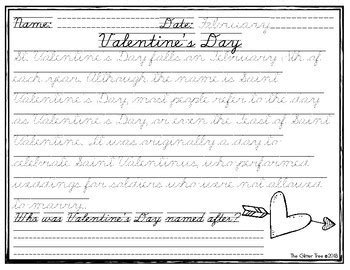 Name: Date: February
Valentine's Day
St. Valentine's Day falls on February 14th of
each year. Although the name is Saint
Valentine's Day, most people refer to the day
as Valentine's Day, or even the Feast of Saint
Valentine. It was originally a day to
celebrate Saint Valentinus, who performed
weddings for soldiers who were not allowed
to marry.
Who was Valentine's Day named after?
The Glitter Tree ©2018